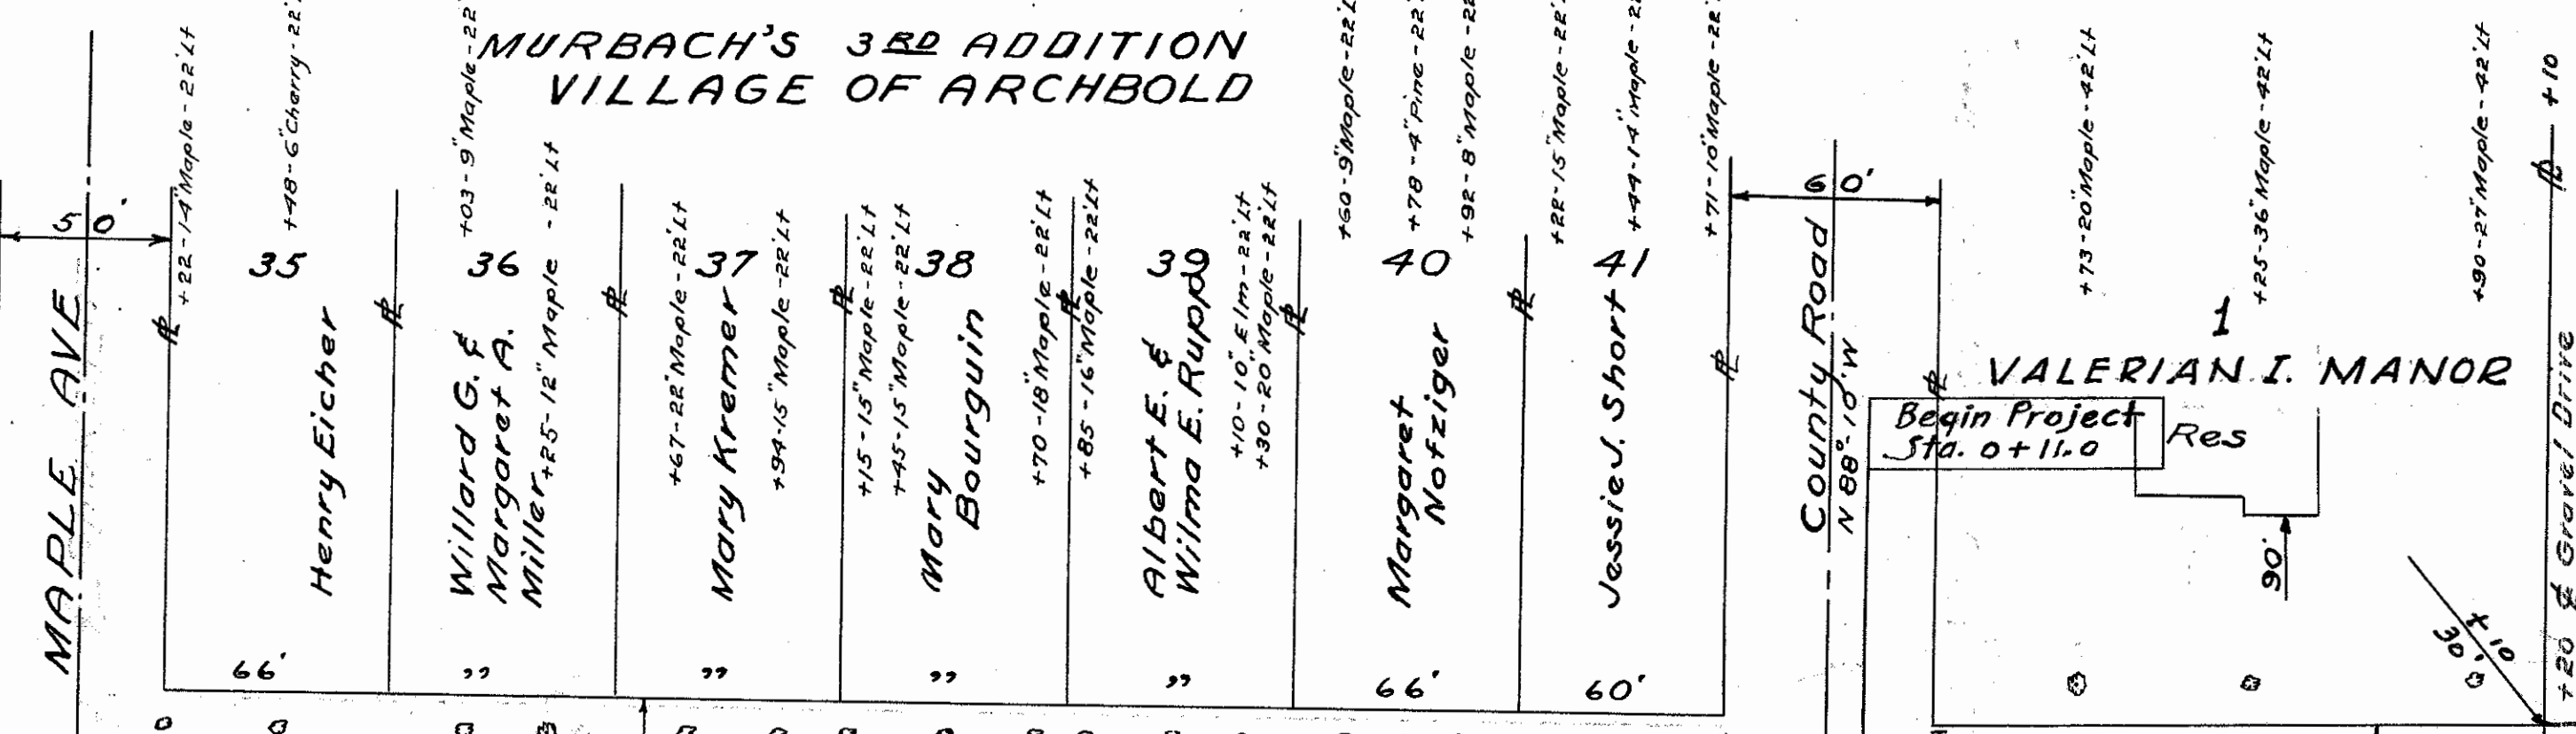 MURBACH'S 3RD ADDITION
VILLAGE OF ARCHBOLD
MAPLE AVE
50'
+22-14"Maple-22'Lt
+48-6"Cherry-22'
35
Henry Eicher
66'
+03-9"Maple-22'
36
Willard G. &
Margaret A.
Miller
+25-12"Maple-22'Lt
"
+67-22"Maple-22'Lt
37
Mary Kremer
+94-15"Maple-22'Lt
"
+15-15"Maple-22'Lt
+45-15"Maple-22'Lt
38
Mary
Bourguin
+70-18"Maple-22'Lt
"
+85-16"Maple-22'Lt
39
Albert E. &
Wilma E. Rupp
+10-10"Elm-22'Lt
+30-20"Maple-22'Lt
"
+60-9"Maple-22'L
+78-4"Pine-22'
+92-8"Maple-22
40
Margaret
Nofziger
66'
+22-15"Maple-22'
+44-14"Maple-22
+71-10"Maple-22'
41
Jessie J. Short
60'
60'
County Road
N 88°-10' W
Begin Project
Sta. 0+11.0
Res
90'
+73-20"Maple-42'Lt
+25-36"Maple-42'Lt
+90-27"Maple-42'Lt
1
VALERIAN I. MANOR
+10
30'
+10
+20 ℄ Gravel Drive
PL
PL
PL
PL
PL
PL
PL
PL
PL
PL